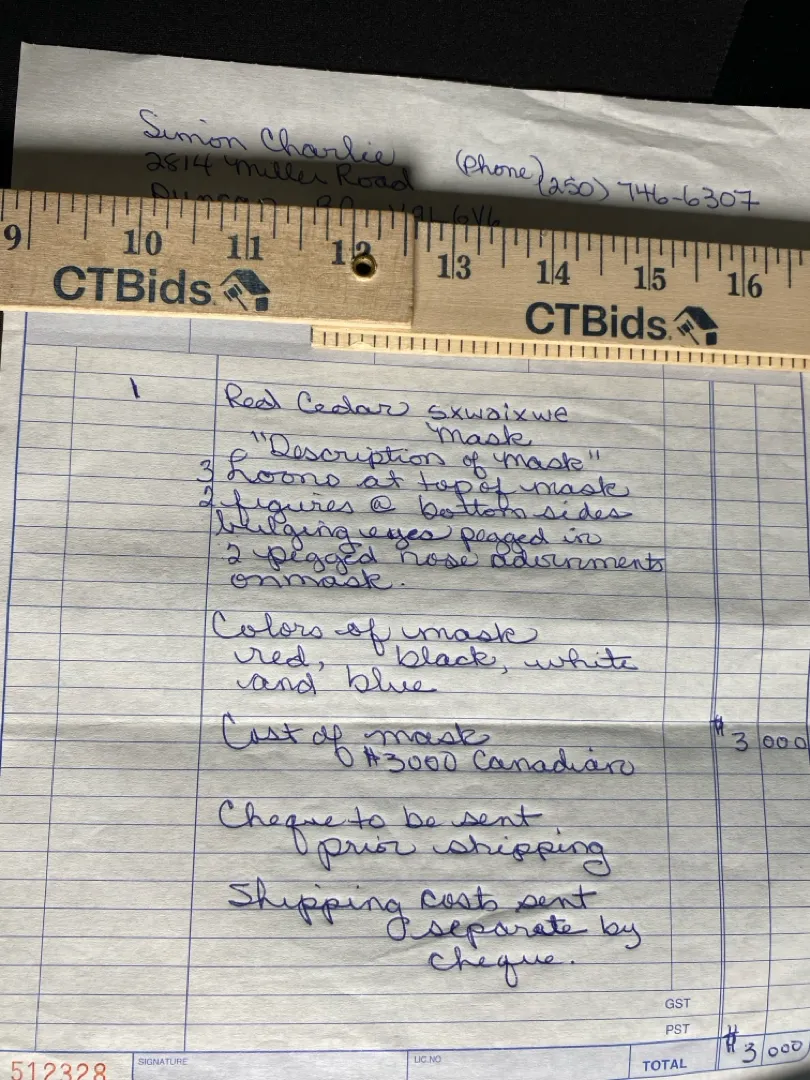 Simon Charlie
2814 Miller Road
(Phone) (250) 746-6307
Duncan
9 10 11 12 13 14 15 16
CTBids.
CTBids.
1 Red Cedar sxwaixwe
mask
"Description of Mask"
3 horns at top of mask
2 figures @ bottom sides
bulging eyes pegged in
2 pegged nose adornments
on mask.
Colors of mask
red, black, white
and blue
Cost of mask $3 000
$3000 Canadian
Cheque to be sent
prior shipping
Shipping costs sent
separate by
cheque.
GST
PST
512328 SIGNATURE LIC.NO TOTAL $3 000